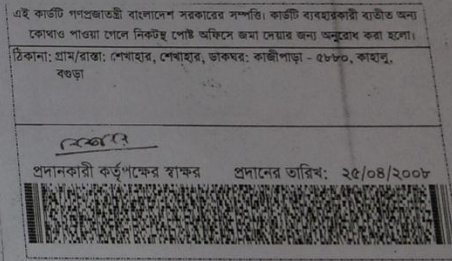 এই কার্ডটি গণপ্রজাতন্ত্রী বাংলাদেশ সরকারের সম্পত্তি। কার্ডটি ব্যবহারকারী ব্যতীত অন্য
কোথাও পাওয়া গেলে নিকটস্থ পোষ্ট অফিসে জমা দেয়ার জন্য অনুরোধ করা হলো।
ঠিকানা: গ্রাম/রাস্তা: শেখাহার, শেখাহার, ডাকঘর: কাজীপাড়া - ৫৮৮০, কাহালু,
বগুড়া
প্রদানকারী কর্তৃপক্ষের স্বাক্ষর প্রদানের তারিখ: ২৫/০৪/২০০৮